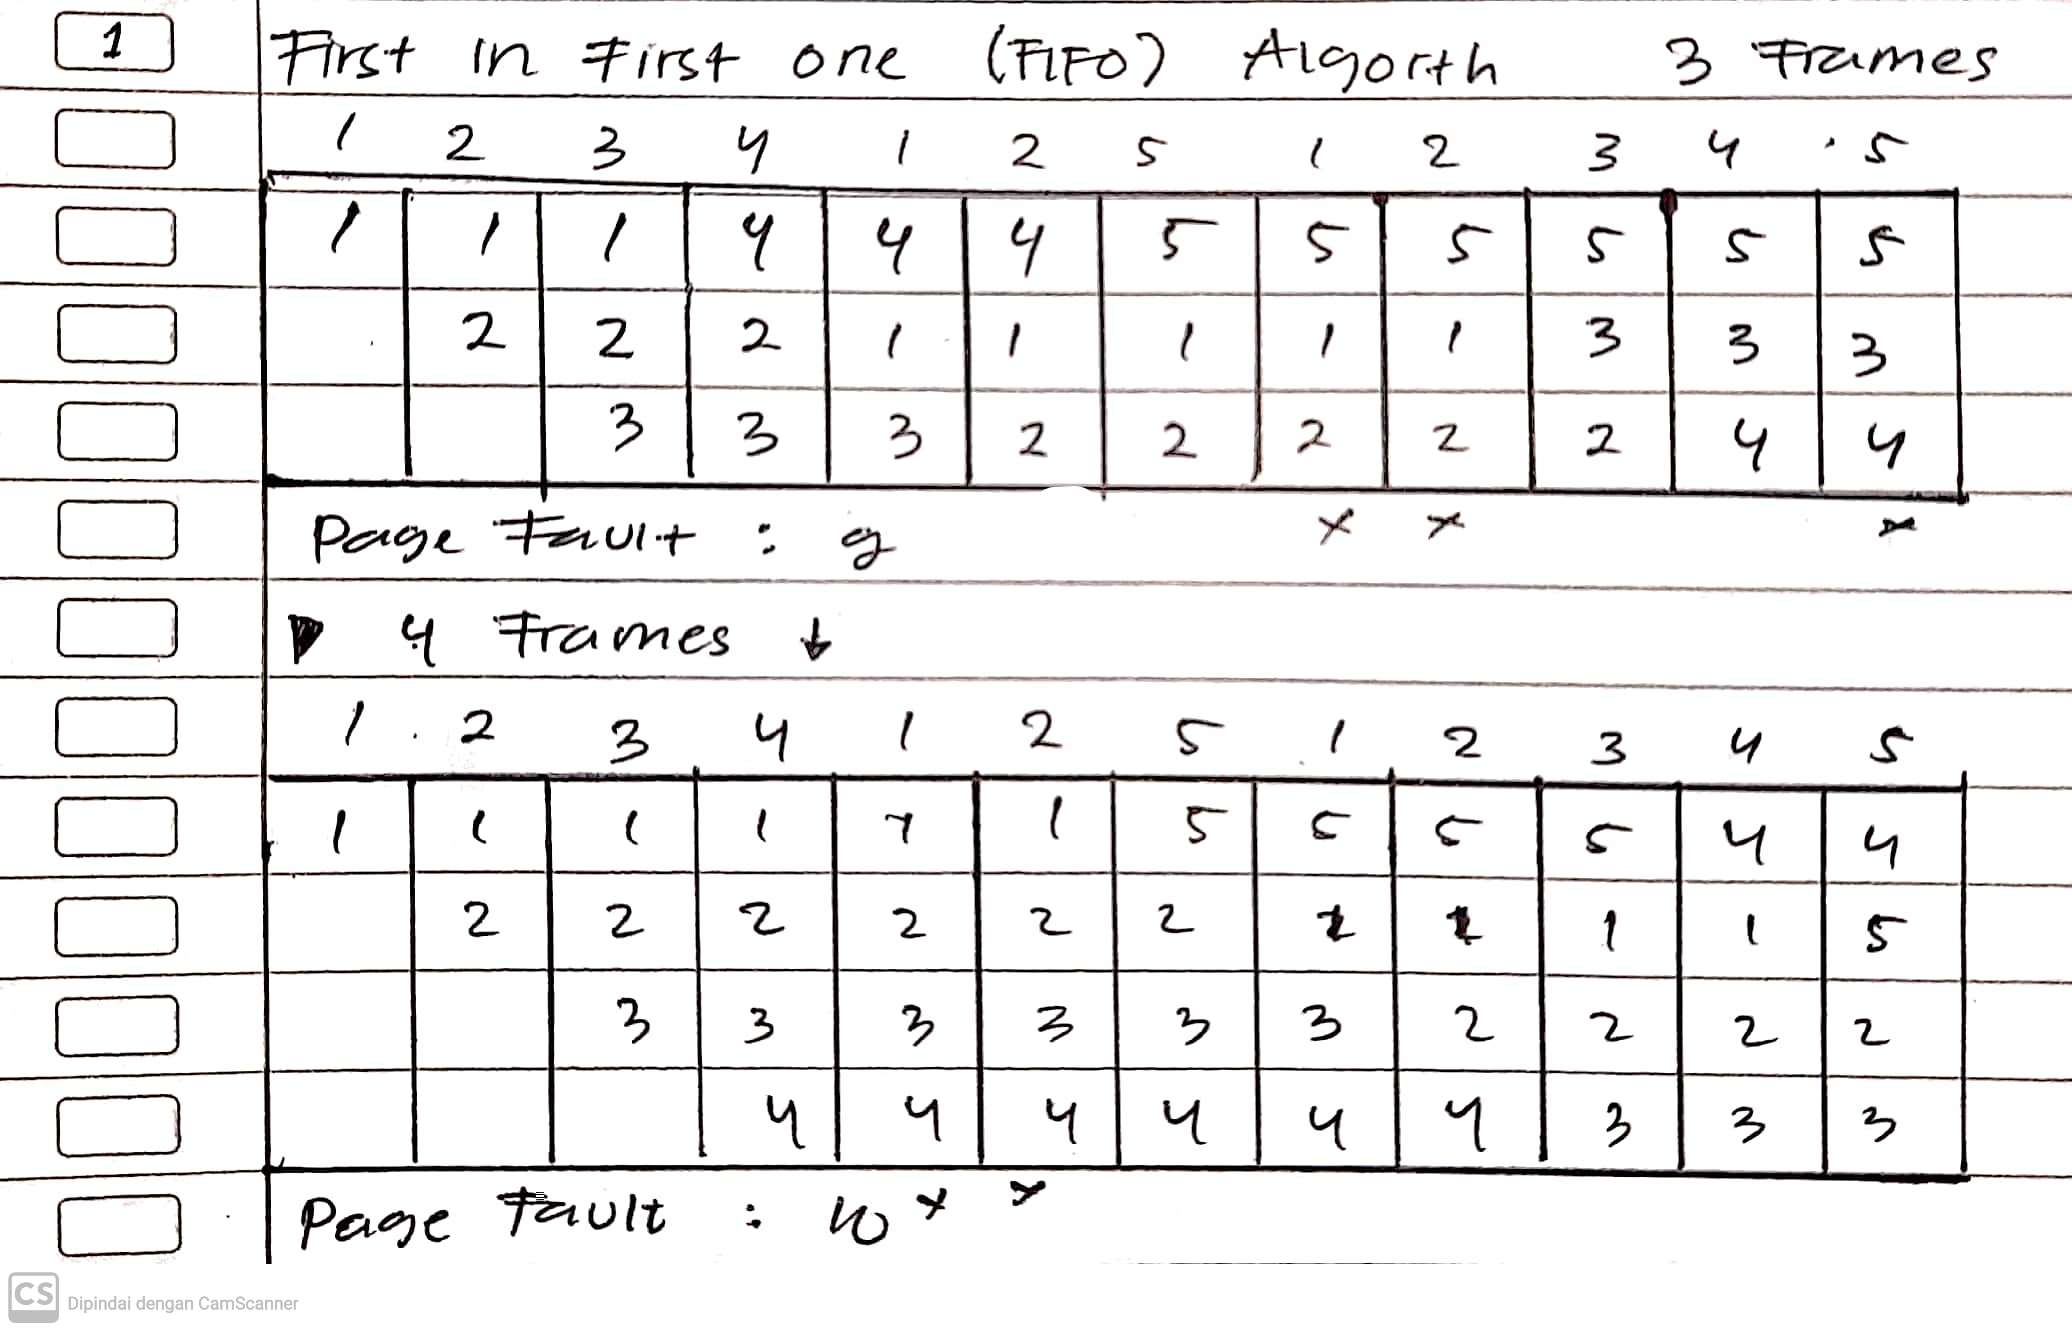 1 First in First one (FIFO) Algorth 3 Frames
1 2 3 4 1 2 5 1 2 3 4 5
1 1 1 4 4 4 5 5 5 5 5 5
2 2 2 1 1 1 1 1 3 3 3
3 3 3 2 2 2 2 2 4 4
Page Fault : 9 x x x
4 Frames ↓
1 2 3 4 1 2 5 1 2 3 4 5
1 1 1 1 1 1 5 5 5 5 4 4
2 2 2 2 2 2 1 1 1 1 5
3 3 3 3 3 3 2 2 2 2
4 4 4 4 4 4 3 3 3
Page Fault : 10 x x
CS Dipindai dengan CamScanner